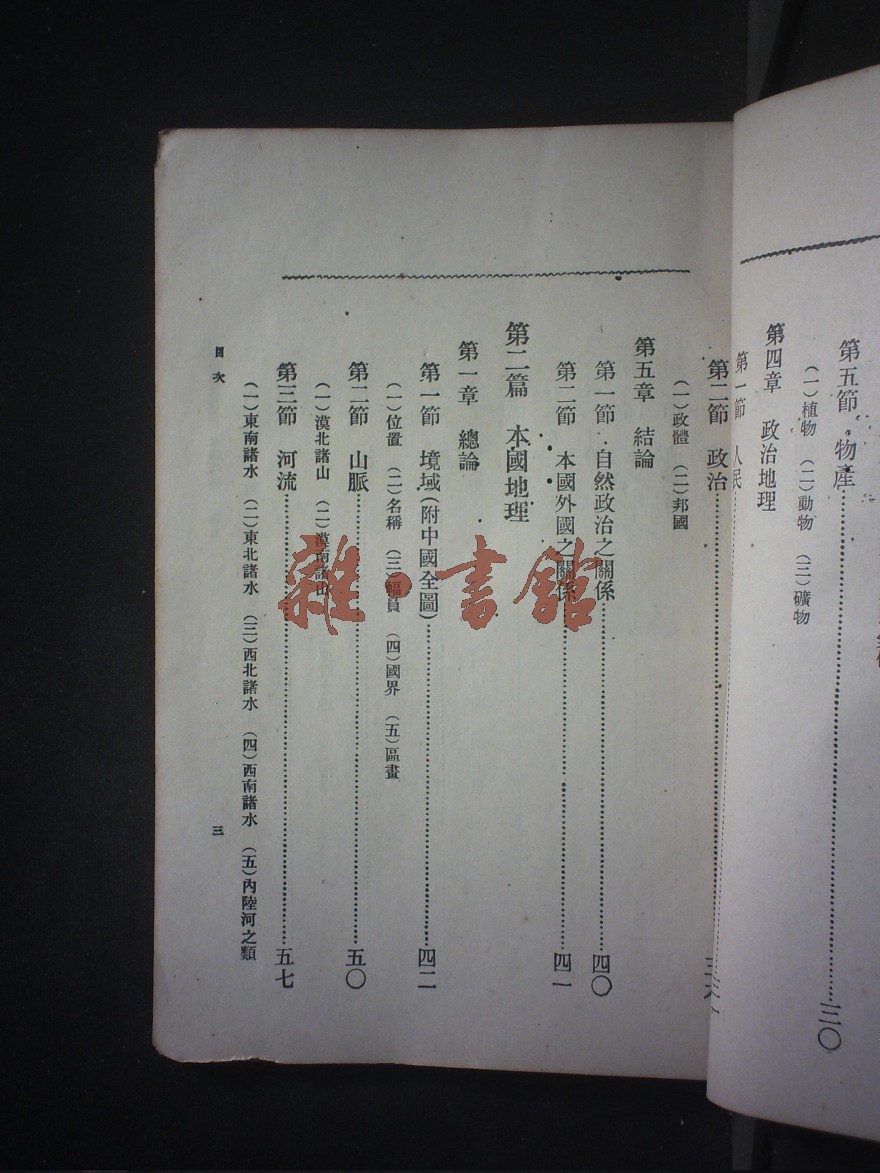 第五節　物產……三〇
（一）植物　（二）動物　（三）礦物
第四章　政治地理
第一節　人民……
第二節　政治……
（一）政體　（二）邦國
第五章　結論
第一節　自然政治之關係……四〇
第二節　本國外國之關係……四一
第二篇　本國地理
第一章　總論
第一節　境域（附中國全圖）……四二
（一）位置　（二）名稱　（三）幅員　（四）國界　（五）區畫
第二節　山脈……五〇
（一）漠北諸山　（二）漠南諸山
第三節　河流……五七
（一）東南諸水　（二）東北諸水　（三）西北諸水　（四）西南諸水　（五）內陸河之類
目次　三
雜·書館